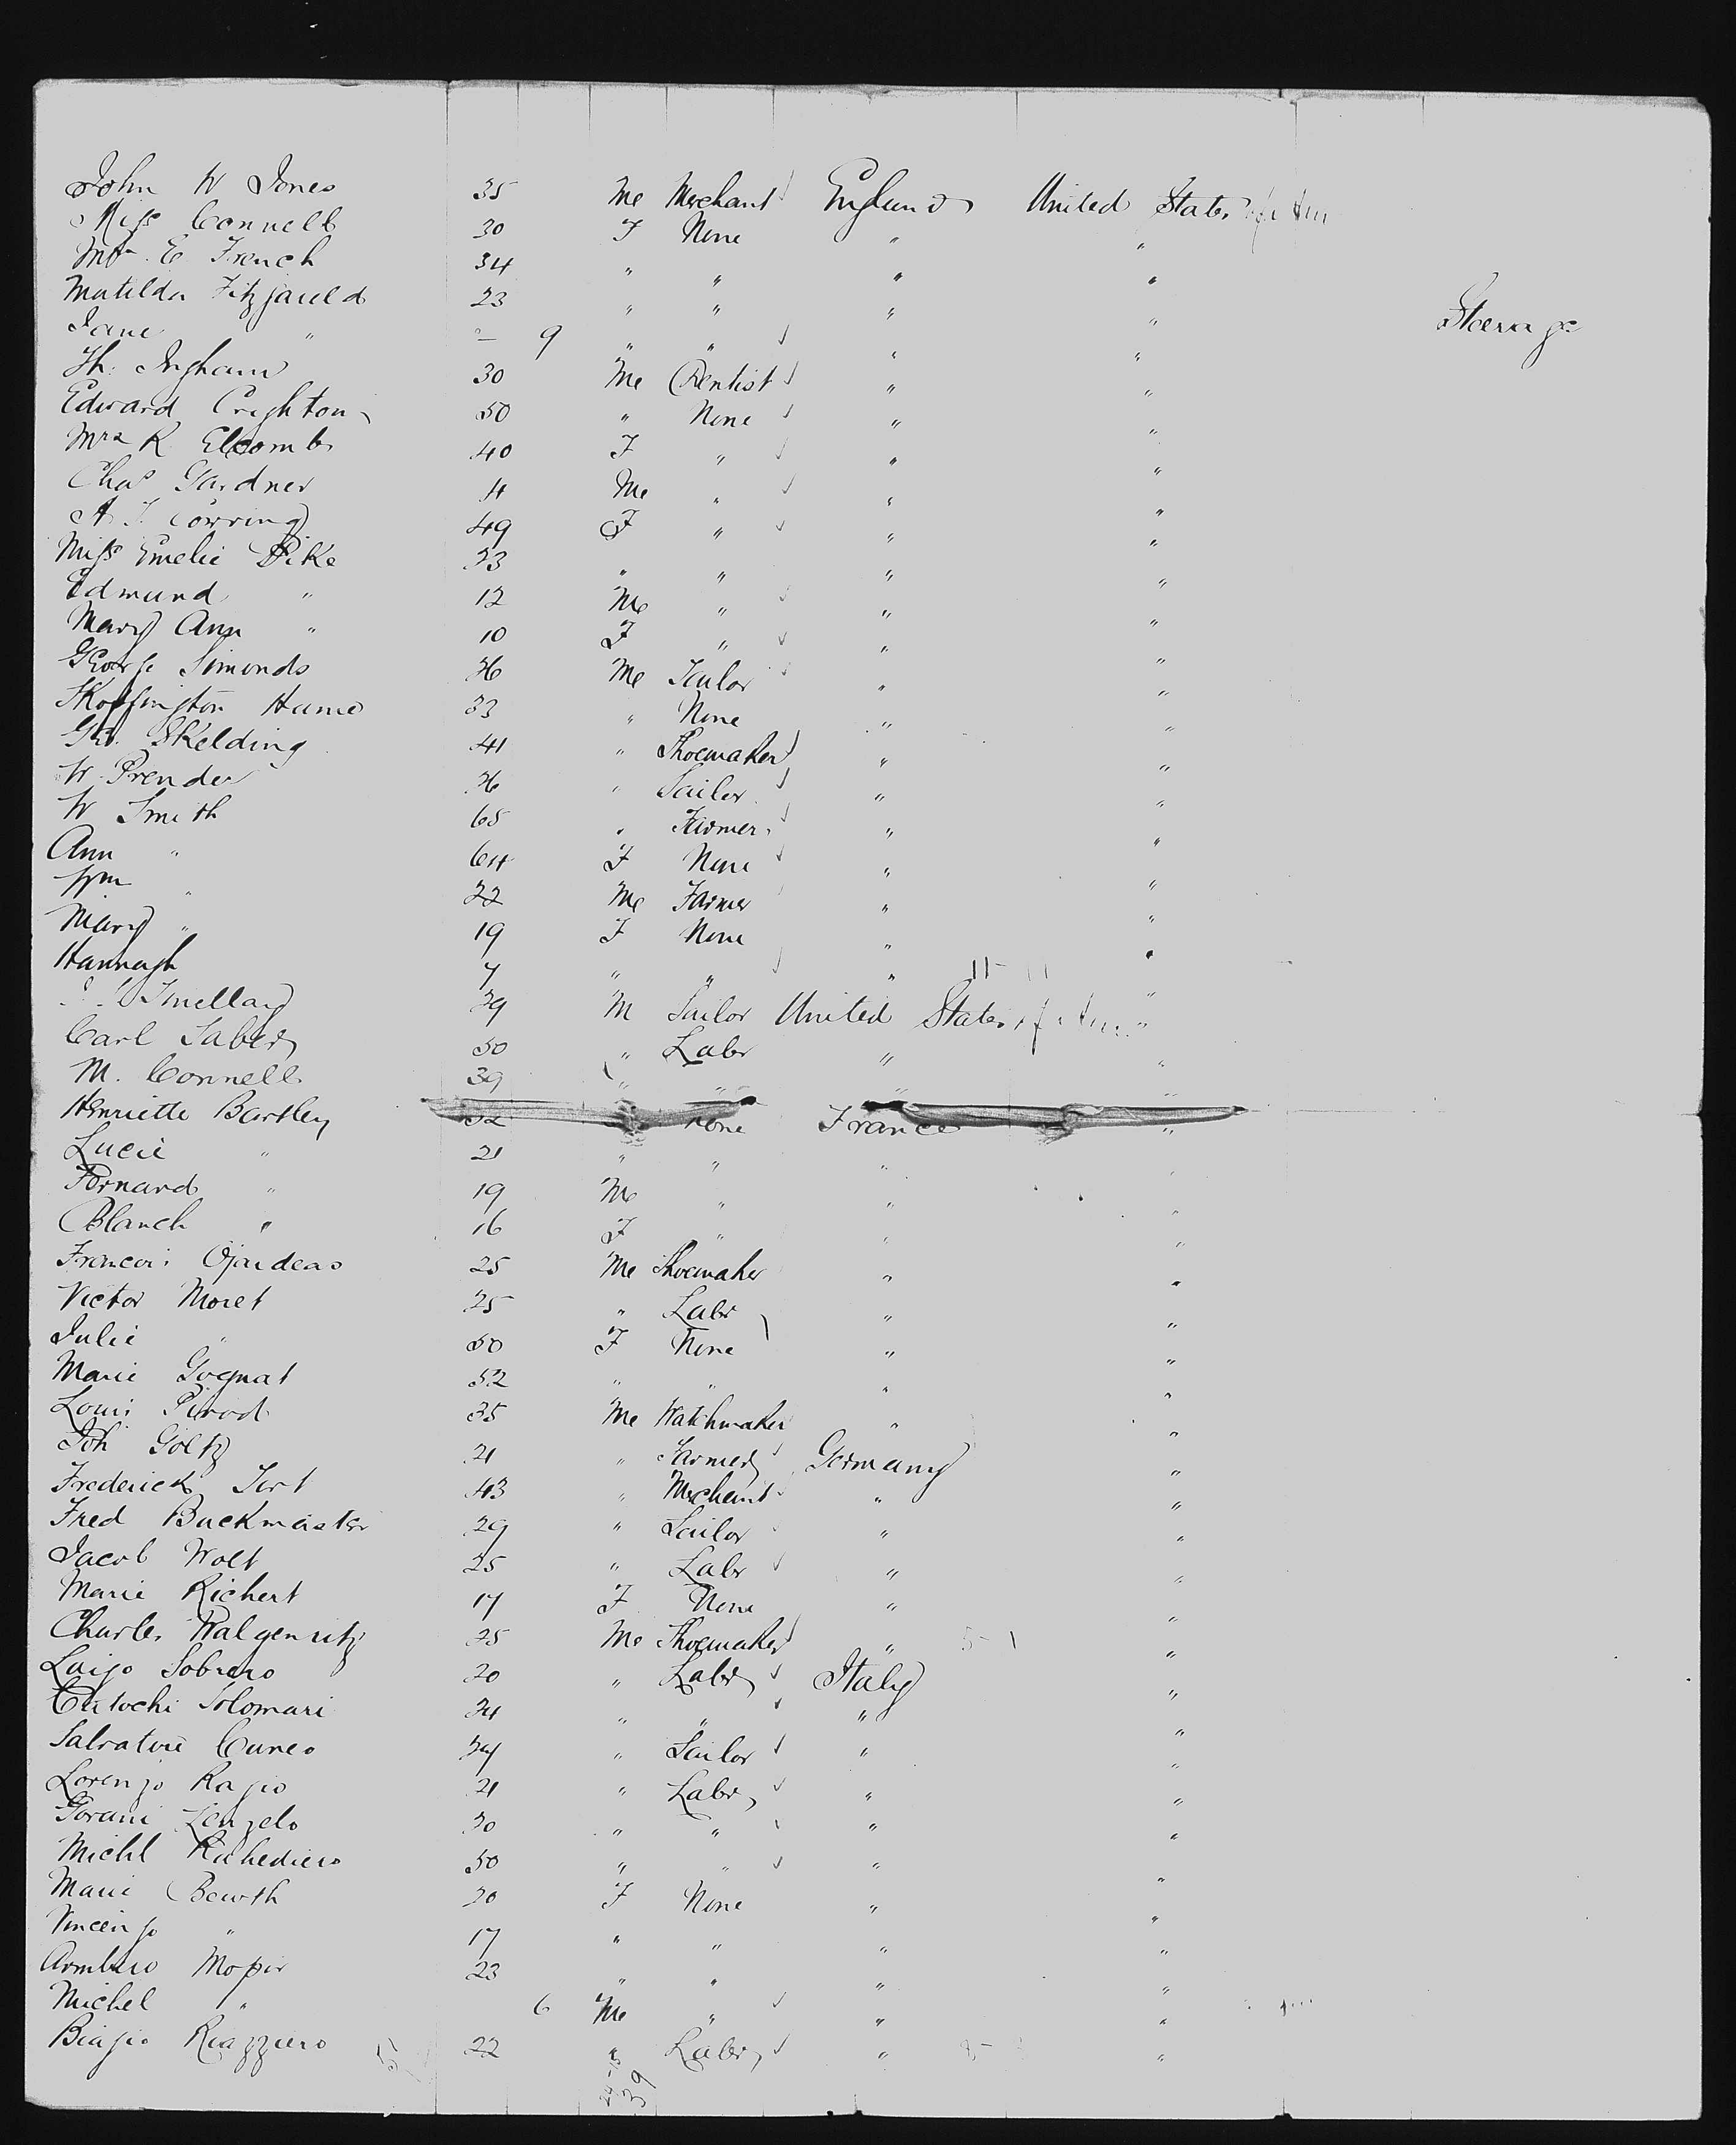 John W Jones 35 Me Merchant England United States of Am
Miss Connell 30 F None " "
Mrs. E French 34 " " " "
Matilda Fitzjareld 23 " " " "
Steerage
Jane " - 9 " " " "
Th. Ingham 30 Me Dentist " "
Edward Crighton 50 " None " "
Mrs R Elcomb 40 F " " "
Chas Gardner 4 Me " " "
A. T. Corring 49 F " " "
Miss Emelie Pike 23 " " " "
Edmund " 12 Me " " "
Mary Ann " 10 F " " "
George Simonds 36 Me Tailor " "
Skoffington Hume 33 " None " "
Geo. Skelding 41 " Shoemaker " "
W. Prender 36 " Sailor " "
W Smith 65 " Farmer " "
Ann " 64 F None " "
Wm " 22 Me Farmer " "
Mary " 19 F None " "
Hannagh 7 " " " "
Smellay 39 M Sailor United States of Am "
Carl Saber 50 " Labr " "
M. Connell 39 " " " "
Henriette Bartley 52 None France "
Lucie " 21 " " " "
Fernand " 19 Me " " "
Blanch " 16 F " " "
Francois Ojardeas 25 Me Shoemaker " "
Victor Moret 25 " Labr " "
Julie " 50 F None " "
Marie Gognat 52 " " " "
Louis Pirod 35 Me Watchmaker " "
Joh Goltz 21 " Farmer Germany "
Frederick Tort 43 " Merchant " "
Fred Buckmaster 29 " Sailor " "
Jacob Wolt 25 " Labr " "
Marie Richert 17 F None " "
Charles Walgenritz 25 Me Shoemaker " "
Luigo Sobrero 20 " Labr Italy "
Solomari 24 " " " "
Salvatore Cuneo 34 " Sailor " "
Lorenzo Ragio 21 " Labr " "
Gorani Lenzelo 30 " " " "
Michl Richediero 50 " " " "
Marie Beurth 20 F None " "
Vincenzo " 17 " " " "
23 " " " "
Michel " 6 Me " " "
Biagio Riazziero 22 " Labr " "
39